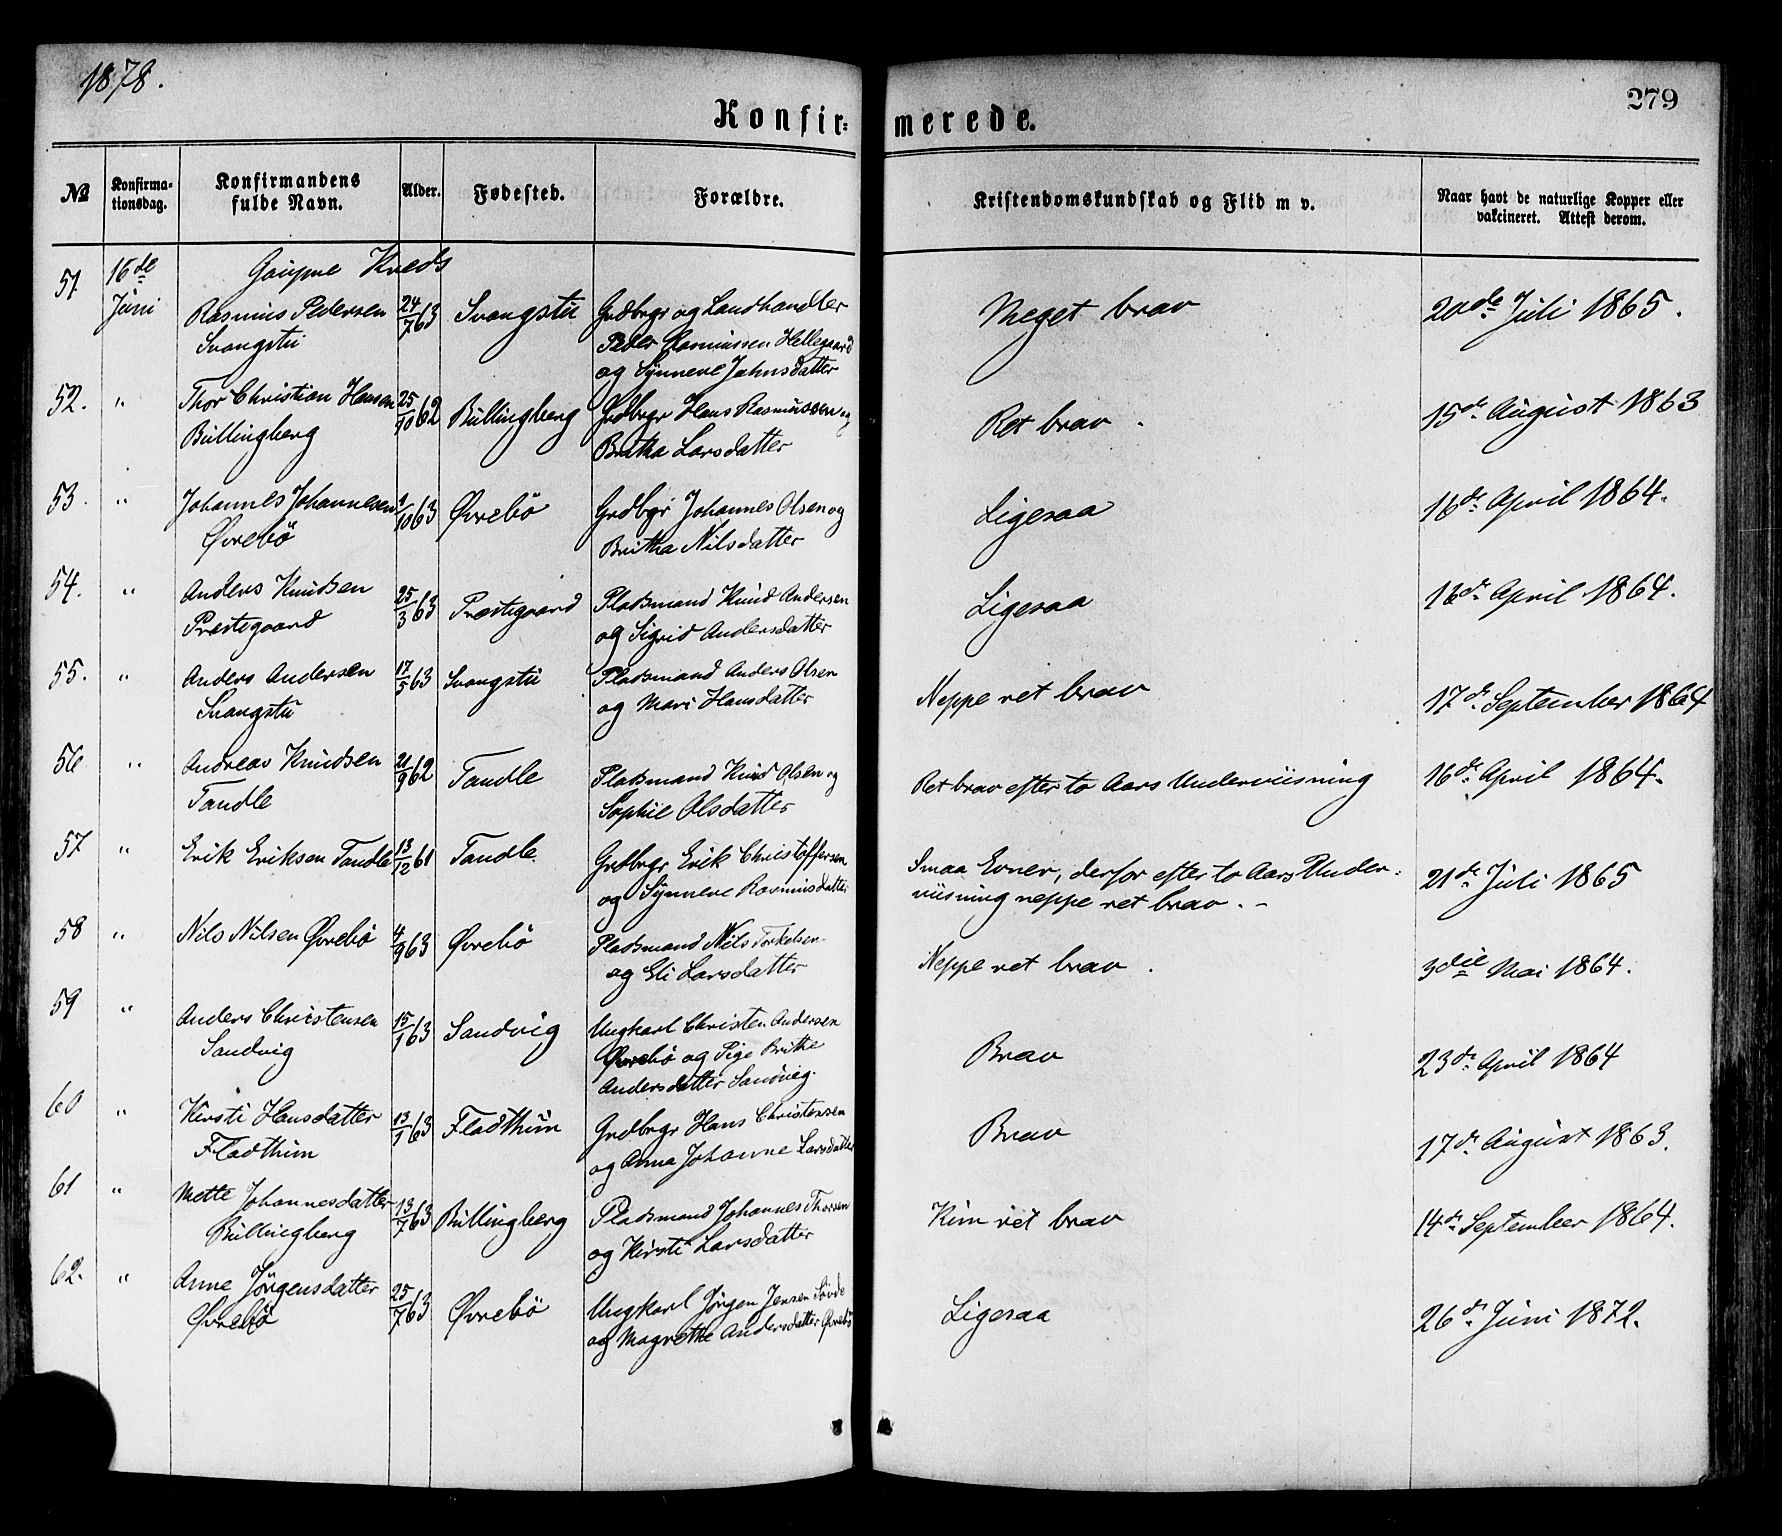 1878.
279
Konfir=
merede.
No
Konfirma-
tionsdag.
Konfirmandens
fulde Navn.
Alder.
Fødested.
Forældre.
Kristendomskundskab og Flid m v.
Naar havt de naturlige Kopper eller
vakcineret. Attest derom.
51. 16de Gaupne Kreds
Juni Rasmus Pedersen 24/7 63 Svangstu Grdbrgr og Landhandler Meget brav 20de Juli 1865.
Svangstu Peder Rasmussen Hellegaard
og Synneve Jahnsdatter
52. " Thor Christian Hansen 25/10 62 Bullingberg Grdbrgr Hans Rasmussen og Ret brav. 15de August 1863
Bullingberg Britha Larsdatter
53. " Johannes Johannesen 9/10 63 Øvrebö Grdbgr Johannes Olsen og Ligesaa 16de April 1864.
Øvrebö Britha Nilsdatter
54. " Anders Knudsen 25/3 63 Præstegaard Pladsmand Knud Andersen Ligesaa 16de April 1864.
Præstegaard og Sigrid Andersdatter
55. " Anders Andersen 17/5 63 Svangstu Pladsmand Anders Olsen Neppe ret brav 17de September 1864
Svangstu og Mari Hansdatter
56 " Andreas Knudsen 21/9 62 Tandle Pladsmand Knud Olsen og Ret brav efter to Aars Underviisning 16de April 1864.
Tandle Sophie Olsdatter
57 " Erik Eriksen Tandle 13/12 61 Tandle Grdbrgr Erik Christoffersen Smaa Evner, derfor efter to Aars Under- 21de Juli 1865
og Synneve Rasmusdatter viisning neppe ret brav. -
58 " Nils Nilsen Øvrebö 4/9 63 Øvrebö Pladsmand Nils Torkelsen Neppe ret brav. 3die Mai 1864.
og Eli Larsdatter
59 " Anders Christensen 15/1 63 Sandvig Ungkarl Christen Andersen Brav 23de April 1864
Sandvig Øvrebö og Pige Brithe
Andersdatter Sandvig.
60 " Kirsti Hansdatter 13/1 63 Fladthum Grdbrgr Hans Christensen Brav 17de August 1863.
Fladthum og Anna Johanne Larsdatter
61 " Mette Johannesdatter 13/7 63 Bullingberg Pladsmand Johannes Thorsen Kun ret brav 14de September 1864.
Bullingberg og Kirsti Larsdatter
62. " Anne Jörgensdatter 25/7 63 Øvrebö Ungkarl Jörgen Jensen Sövde Ligesaa 26de Juni 1872.
Øvrebö og Magrethe Andersdatter Øvrebö